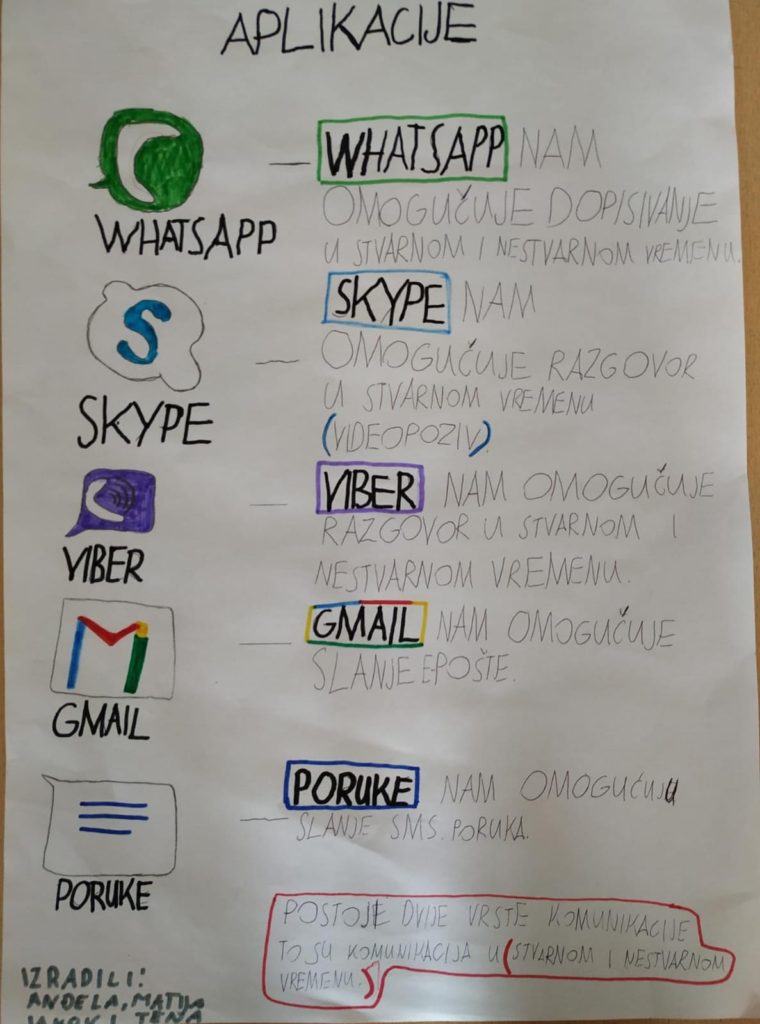 APLIKACIJE
WHATSAPP
— WHATSAPP NAM
OMOGUČUJE DOPISIVANJE
U STVARNOM I NESTVARNOM VREMENU.
S
SKYPE
— SKYPE NAM
OMOGUČUJE RAZGOVOR
U STVARNOM VREMENU
(VIDEOPOZIV)
VIBER
— VIBER NAM OMOGUČUJE
RAZGOVOR U STVARNOM I
NESTVARNOM VREMENU.
M
GMAIL
— GMAIL NAM OMOGUČUJE
SLANJE EPOŠTE.
PORUKE
— PORUKE NAM OMOGUĆUJU
SLANJE SMS. PORUKA.
POSTOJE DVIJE VRSTE KOMUNIKACIJE
TO SU KOMUNIKACIJA U (STVARNOM I NESTVARNOM
VREMENU.)
IZRADILI:
ANĐELA, MATIJA
I TENA